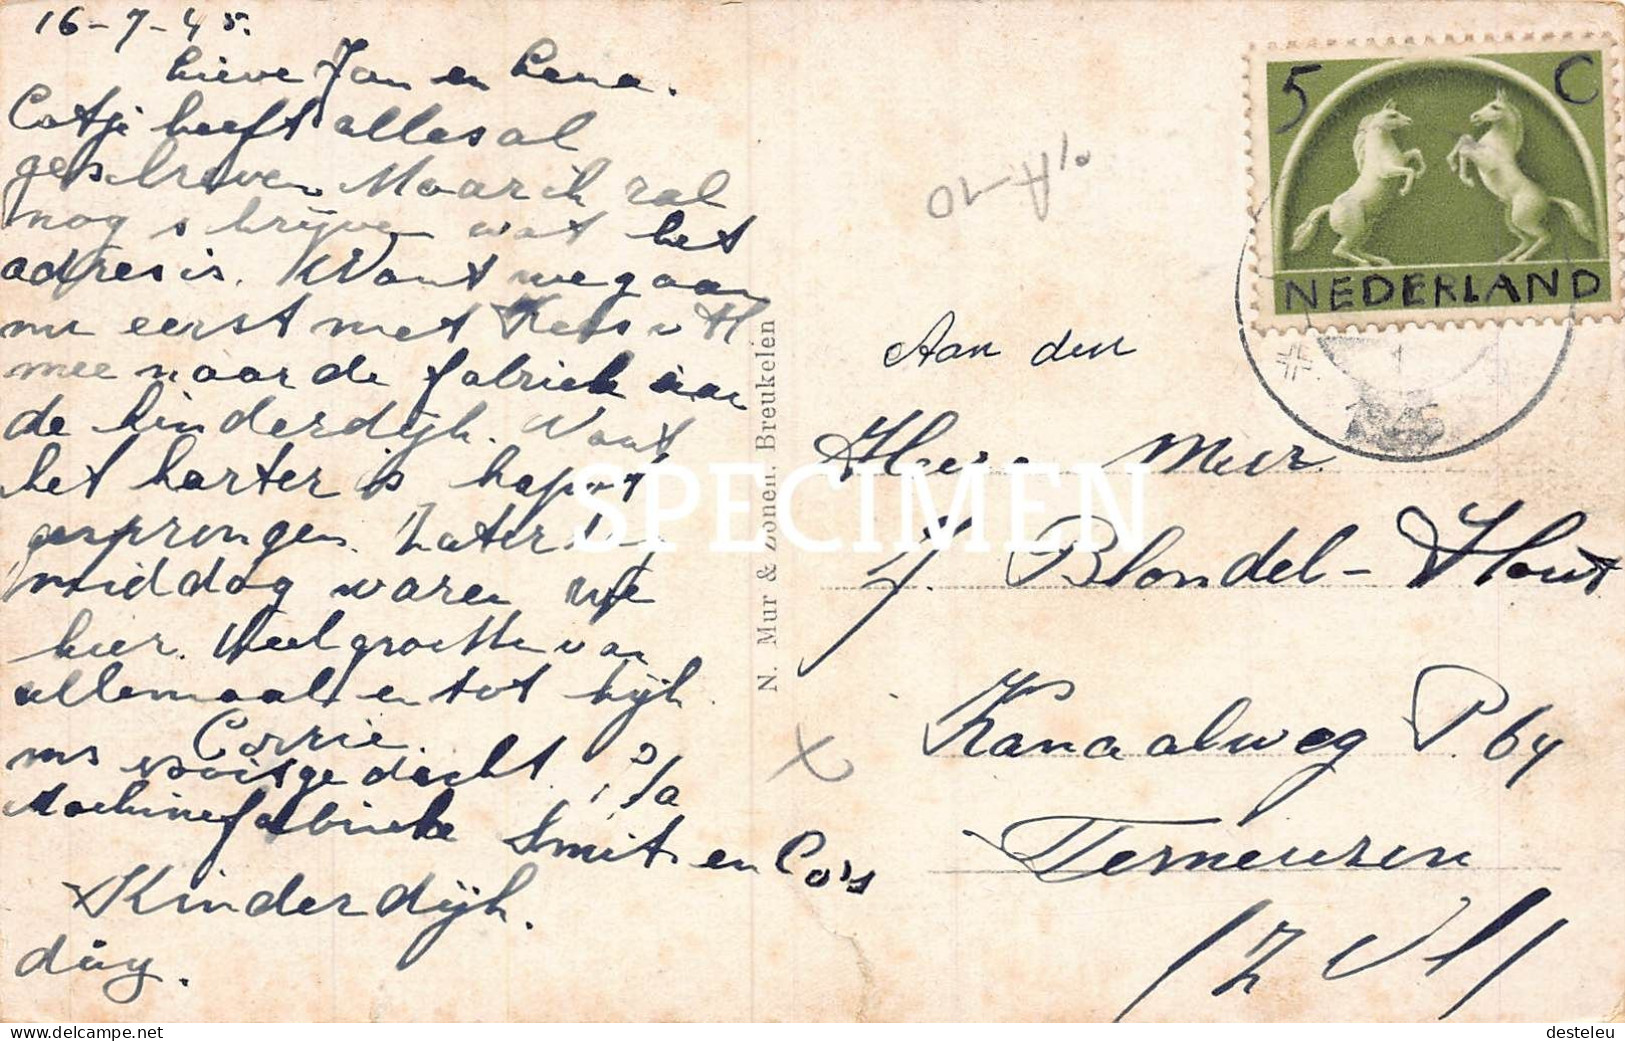 16-7-45.
Lieve Jan en Lena.
Catje heeft alles al
geschreven Maar ik zal
nog schrijven wat het
adres is. Want we gaan
nu eerst met Kees v H
mee naar de fabriek aan
de kinderdijk. Want
het karter is kapot
gesprongen. Zater
middag waren we
hier. Veel groeten van
allemaal en tot kijk
Corrie.
ms nooitgedacht. P/a
Machinefabrieke Smit en Co's
Kinderdijk.
dág.
N. Mur & Zonen. Breukelen
5 C
NEDERLAND
1945
Aan den
Heere Meer
J. Blondel-Hout
Kanaalweg P 64
Terneuzen
(Z Vl)
SPECIMEN
delcampe.net
desteleu